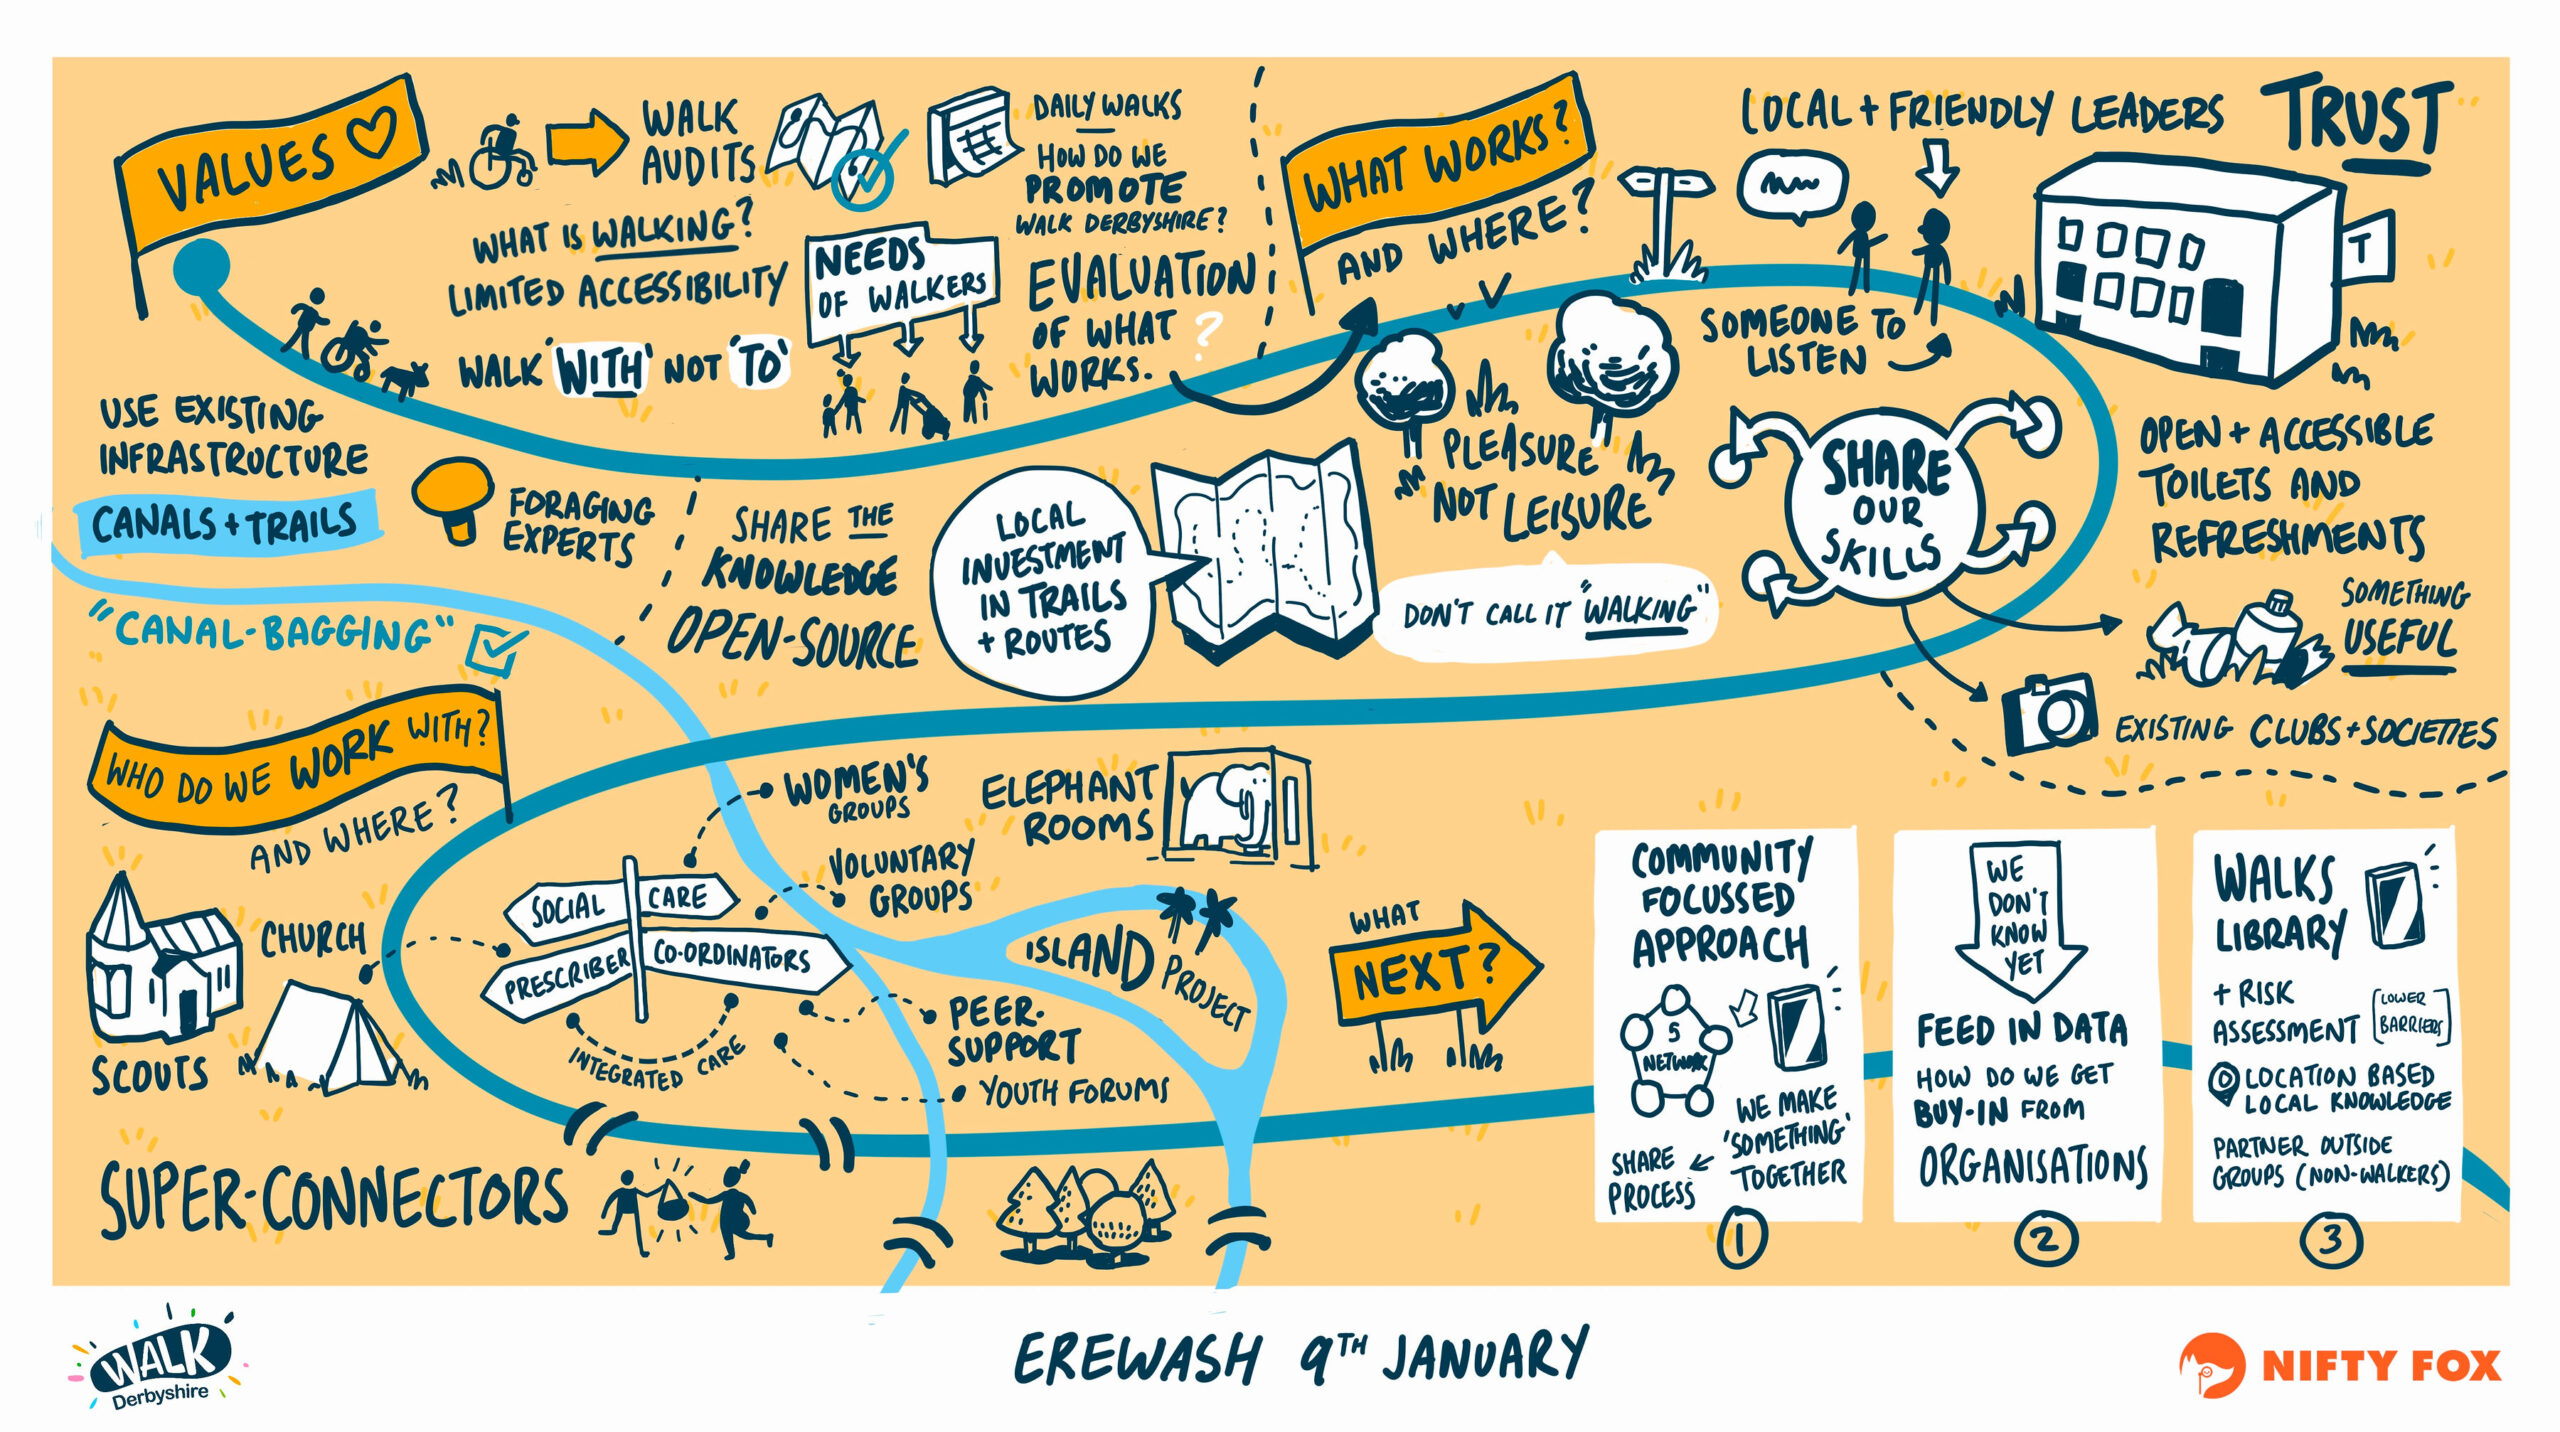 VALUES
WALK
AUDITS
WHAT IS WALKING?
LIMITED ACCESSIBILITY
WALK 'WITH' NOT 'TO'
NEEDS
OF WALKERS
DAILY WALKS
HOW DO WE
PROMOTE
WALK DERBYSHIRE?
EVALUATION
OF WHAT
WORKS.
?
USE EXISTING
INFRASTRUCTURE
CANALS + TRAILS
"CANAL-BAGGING"
FORAGING
EXPERTS
SHARE THE
KNOWLEDGE
OPEN-SOURCE
WHAT WORKS?
AND WHERE?
LOCAL + FRIENDLY LEADERS
TRUST
T
SOMEONE TO
LISTEN
PLEASURE
NOT LEISURE
DON'T CALL IT "WALKING"
LOCAL
INVESTMENT
IN TRAILS
+ ROUTES
SHARE
OUR
SKILLS
OPEN + ACCESSIBLE
TOILETS AND
REFRESHMENTS
SOMETHING
USEFUL
EXISTING CLUBS + SOCIETIES
WHO DO WE WORK WITH?
AND WHERE?
CHURCH
SCOUTS
SOCIAL
CARE
PRESCRIBER
CO-ORDINATORS
INTEGRATED CARE
WOMEN'S
GROUPS
VOLUNTARY
GROUPS
PEER-
SUPPORT
YOUTH FORUMS
ELEPHANT
ROOMS
ISLAND PROJECT
SUPER-CONNECTORS
WHAT
NEXT?
COMMUNITY
FOCUSSED
APPROACH
5
NETWORK
WE MAKE
'SOMETHING'
TOGETHER
SHARE
PROCESS
1
WE
DON'T
KNOW
YET
FEED IN DATA
HOW DO WE GET
BUY-IN FROM
ORGANISATIONS
2
WALKS
LIBRARY
+ RISK
ASSESSMENT
[LOWER
BARRIERS]
LOCATION BASED
LOCAL KNOWLEDGE
PARTNER OUTSIDE
GROUPS (NON-WALKERS)
3
WALK
Derbyshire
EREWASH 9TH JANUARY
NIFTY FOX